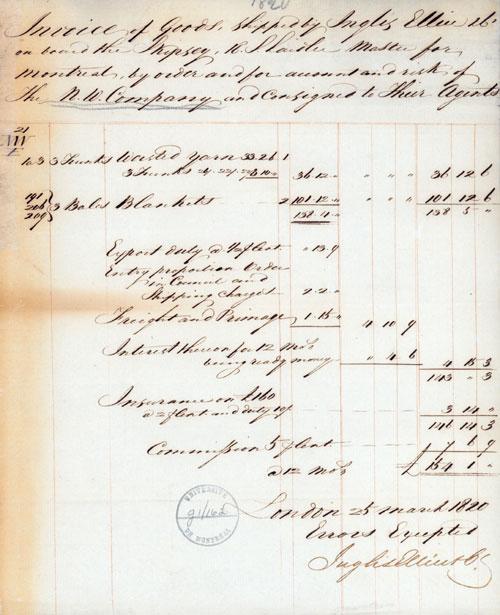 1820
Invoice of Goods, shipped by Inglis Ellice & Co
on board the Master for
Montreal, by order and for account and risk of
the N.W. Company and Consigned to Their Agents
21
NW
1 a 3 3 Trunks Worsted Yarn 33.26 1
3 Trunks 36 12 " " " " 36 12 6
3 Bales Blankets 2 101 12 " " " " 101 12 6
138 4 " 138 5 "
Export duty a ½ p Cent " 13 9
Entry proportion Order
in Council and
Shipping Charges 2 2 "
Freight and Primage 1 15 " 4 10 9
Interest thereon for 12 Mos
being ready money " 4 6 4 15 3
143 " 3
Insurance on £160
p Cent and duty 3 14 "
146 14 3
Commission 5 p Cent 7 6 9
a 12 Mos £ 154 1 "
UNIVERSITÉ
DE MONTRÉAL
G1/162
London 25 March 1820
Errors Excepted
Inglis Ellice & Co